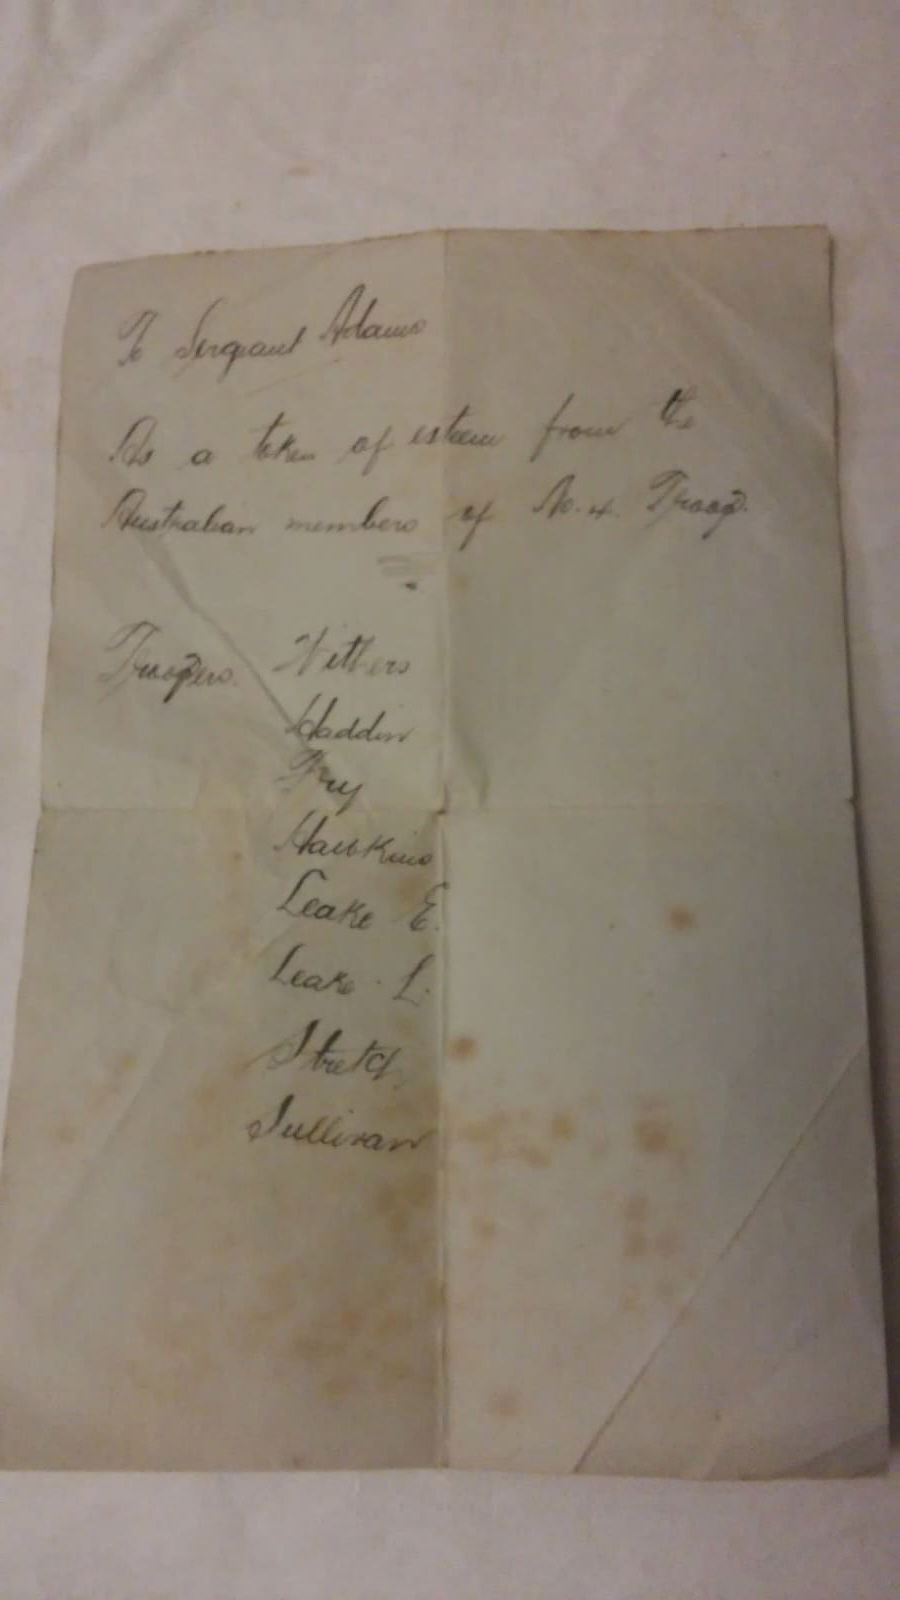 To Sergeant Adams
As a token of esteem from the
Australian members of No. 4. Troop.
Troopers. Withers
Haddin
Fry
Hawkins
Leake E.
Leake. L.
Stretch
Sullivan